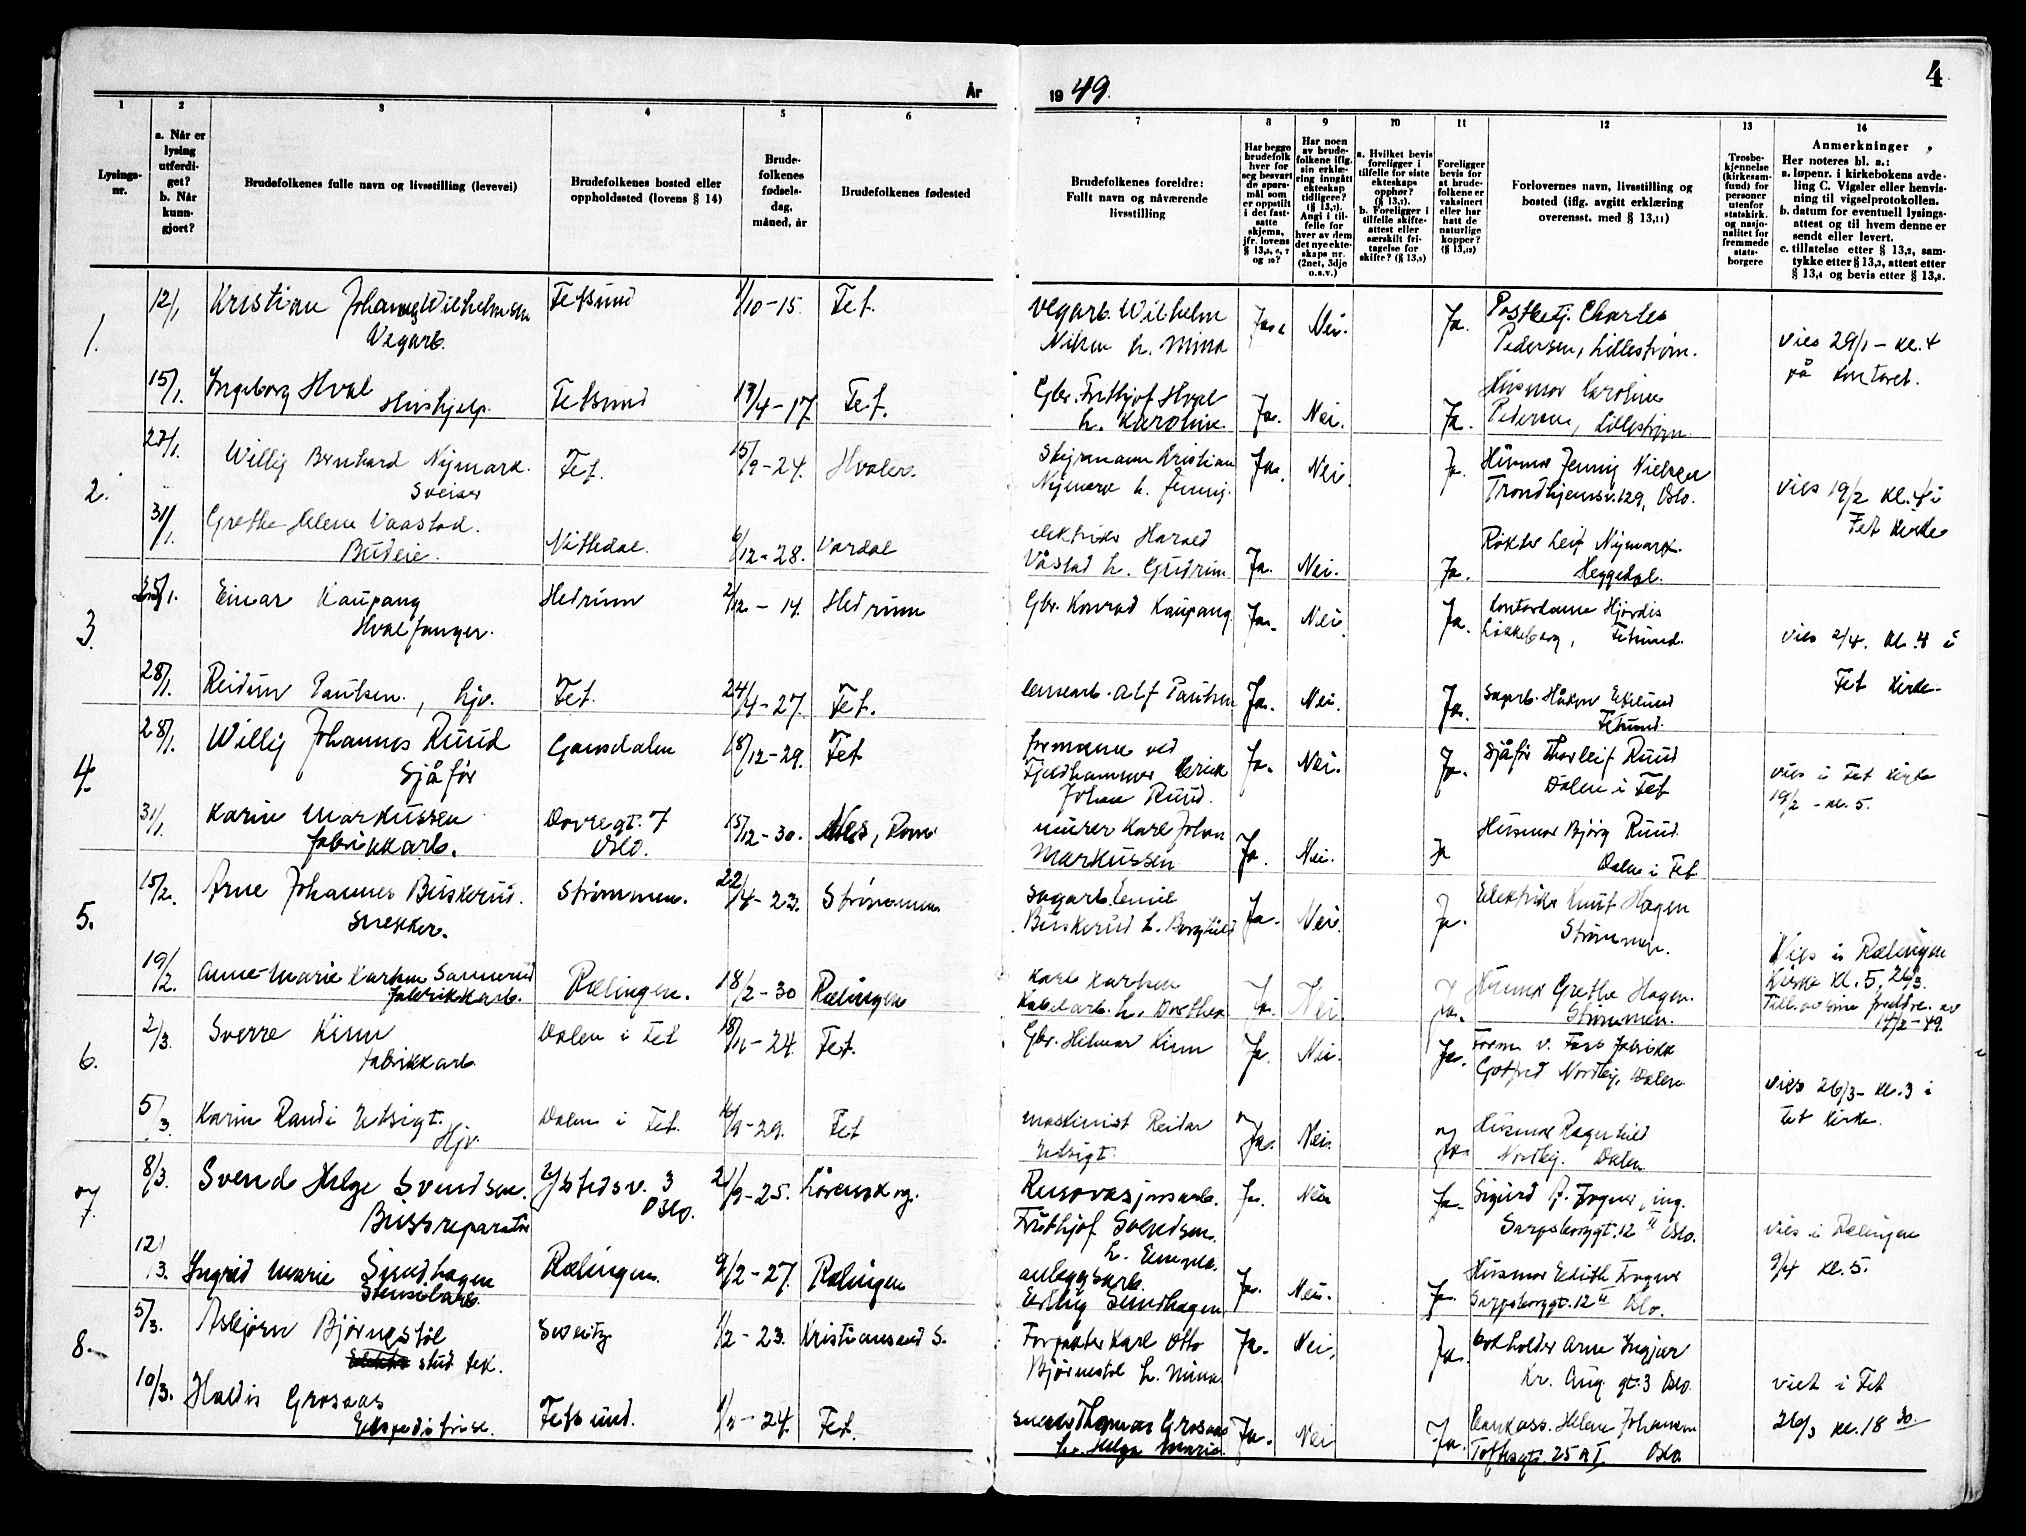 År 1949.
4
1
2
3
4
5
6
7
8
9
10
11
12
13
14
Lysings-
nr.
a. Når er
lysing
utferdi-
get?
b. Når
kunn-
gjort?
Brudefolkenes fulle navn og livsstilling (levevei)
Brudefolkenes bosted eller
oppholdssted (lovens § 14)
Brude-
folkenes
fødsels-
dag,
måned, år
Brudefolkenes fødested
Brudefolkenes foreldre:
Fullt navn og nåværende
livsstilling
Har begge
brudefolk
hver for
seg besvart
de spørs-
mål som
er oppstilt
i det fast-
satte
skjema,
jfr. lovens
Har noen
av brude-
folkene iflg.
sin erklæ-
ring inngått
ekteskap
tidligere?
Angi i til-
felle for
hver av dem
det nye ekte-
skaps nr.
(2net, 3dje
o.s.v.)
a. Hvilket bevis
foreligger i
tilfelle for siste
ekteskaps
opphør?
b. Foreligger i
tilfelle skifte-
attest eller
særskilt fri-
tagelse for
skifte?
Foreligger
bevis for
at brude-
folkene er
vaksinert
eller har
hatt de
naturlige
kopper?
Forlovernes navn, livsstilling og
bosted (iflg. avgitt erklæring
overensst. med § 13,11)
Trosbe-
kjennelse
(kirkesam-
fund) for
personer
utenfor
statskirk.
og nasjo-
nalitet for
fremmede
stats-
borgere
Anmerkninger
Her noteres bl. a.:
a. løpenr. i kirkebokens avde-
ling C. Vigsler eller henvis-
ning til vigselprotokollen.
b. datum for eventuell lysings-
attest og til hvem denne er
sendt eller levert.
c. tillatelse etter § 13,2, sam-
tykke etter § 13,3, attest etter
§ 13,4 og bevis etter § 13,8.
1.
12/1 Kristian Johannes Wilhelmsen Fetsund 1/10-15. Fet. Vegarb. Wilhelm Nei. Ja. Postbetj. Charles
Vegarb. Nilsen h. Mina Pedersen, Lillestrøm. Vies 29/1 - kl. 4
på kontoret.
15/1. Ingeborg Hval Fetsund 17/4-17. Fet. Gbr. Frithjof Hval Ja. Nei. Ja. Husmor Karoline
Hushjelp. h. Karoline. Pedersen, Lillestrøm.
2.
27/1. Willy Bernhard Nymark. Fet. 15/9-24. Hvaler. Kristian Ja. Nei. Ja. Husmor Jenny Nielsen
Sveiser Nymark h. Jenny. Trondhjemsv. 129, Oslo. Vies 19/2 kl. 4 i
Fet kirke
31/1. Grethe Helene Vaastad. Nittedal. 6/12-28. Vardal elektriker Harald Ja. Nei. Ja. Røkter Leif Nymark.
Budeie. Våstad h. Gudrun Heggedal.
3.
25/1. Einar Kaupang Hedrum 2/12-14. Hedrum Gbr. Konrad Kaupang Ja. Nei. Ja. Kontordame Hjørdis
Hvalfanger. Løkkeberg, Fetsund. Vies 2/4. kl. 4 i
Fet kirke.
28/1. Reidun Paulsen, hjv. Fet. 24/4-27. Fet. lensearb. Alf Paulsen Ja. Nei. Ja. Sagarb. Håkon Eklund
Fetsund.
4.
28/1. Willy Johannes Ruud Gansdalen 18/12-29. Fet formann ved Ja. Nei. Ja. Sjåfør Thorleif Ruud
Sjåfør Fjeldhammer Erick Dalen i Fet
Johan Ruud. vies i Fet kirke
19/2 - kl. 5.
31/1. Karin Markussen Dovregt. 7 15/12-30. Nes, Rom. murer Karl Johan Ja. Nei. Ja Husmor Bjørg Ruud
fabrikkarb. Oslo. Markussen Dalen i Fet
5.
15/2. Arne Johannes Buskerud. Strømmen. 22/4-23. Strømmen sagarb. Emil Ja. Nei. Ja. Elektriker Knut Hagen
Snekker. Buskerud h. Borghild Strømmen.
19/2. Anne-Marie Karlsen Sannerud Rælingen. 18/2-30 Rælingen Karl Karlsen Ja. Nei. Ja. Husmor Grethe Hagen.
fabrikkarb. Kabelarb. h. Dorthea Strømmen.
Vies i Rælingen
Kirke kl. 5, 26/3.
Till. av sine foreldre. av
14/2-49.
6.
2/3. Sverre Kinn Dalen i Fet 18/11-24. Fet. Gbr. Helmar Kinn Ja. Nei. Ja. Form. v. Fabrikk
fabrikkarb. Gotfred Nordby, Dalen.
vies 26/3 - kl. 3 i
Fet kirke.
5/3. Karin Randi Utsigt. Dalen i Fet. 16/9-29. Fet maskinist Reidar Ja. Nei. Ja. Husmor Ragnhild
Hjv. Utsigt. Nordby. Dalen.
7.
8/3. Svend Helge Svendsen. Ystedsv. 3 21/9-25. Lørenskog. Renovasjonsarb. Ja. Nei Ja. Sigurd A. Fogner, ing.
Bussreparatør Oslo. Frithjof Svendsen. Sarpsborggt. 12 II Oslo.
h. Emma.
vies i Rælingen
9/4 kl. 5.
12/3. Ingrid Marie Sundhagen Rælingen. 9/2-27. Rælingen anleggsarb. Ja. Nei. Ja. Husmor Edith Fogner
Erling Sundhagen Sarpsborggt. 12 II Oslo.
8.
5/3. Asbjørn Bjørnestøl Sveits 1/2-23. Kristiansand S. Forpakter Karl Otto Ja. Nei. Ja. Bokholder Arne Ingjer
stud. tek. Bjørnestøl h. Mina Kr. Aug. gt. 3 Oslo.
viet i Fet
26/3 kl. 18 30.
10/3. Haldis Grosaas Fetsund. Fet. Snekker Thomas Grosaas Ja. Nei Ja. Helene Johansen
Ekspeditrise. h. Helga Marie. Toftesgt. 25 A I Oslo